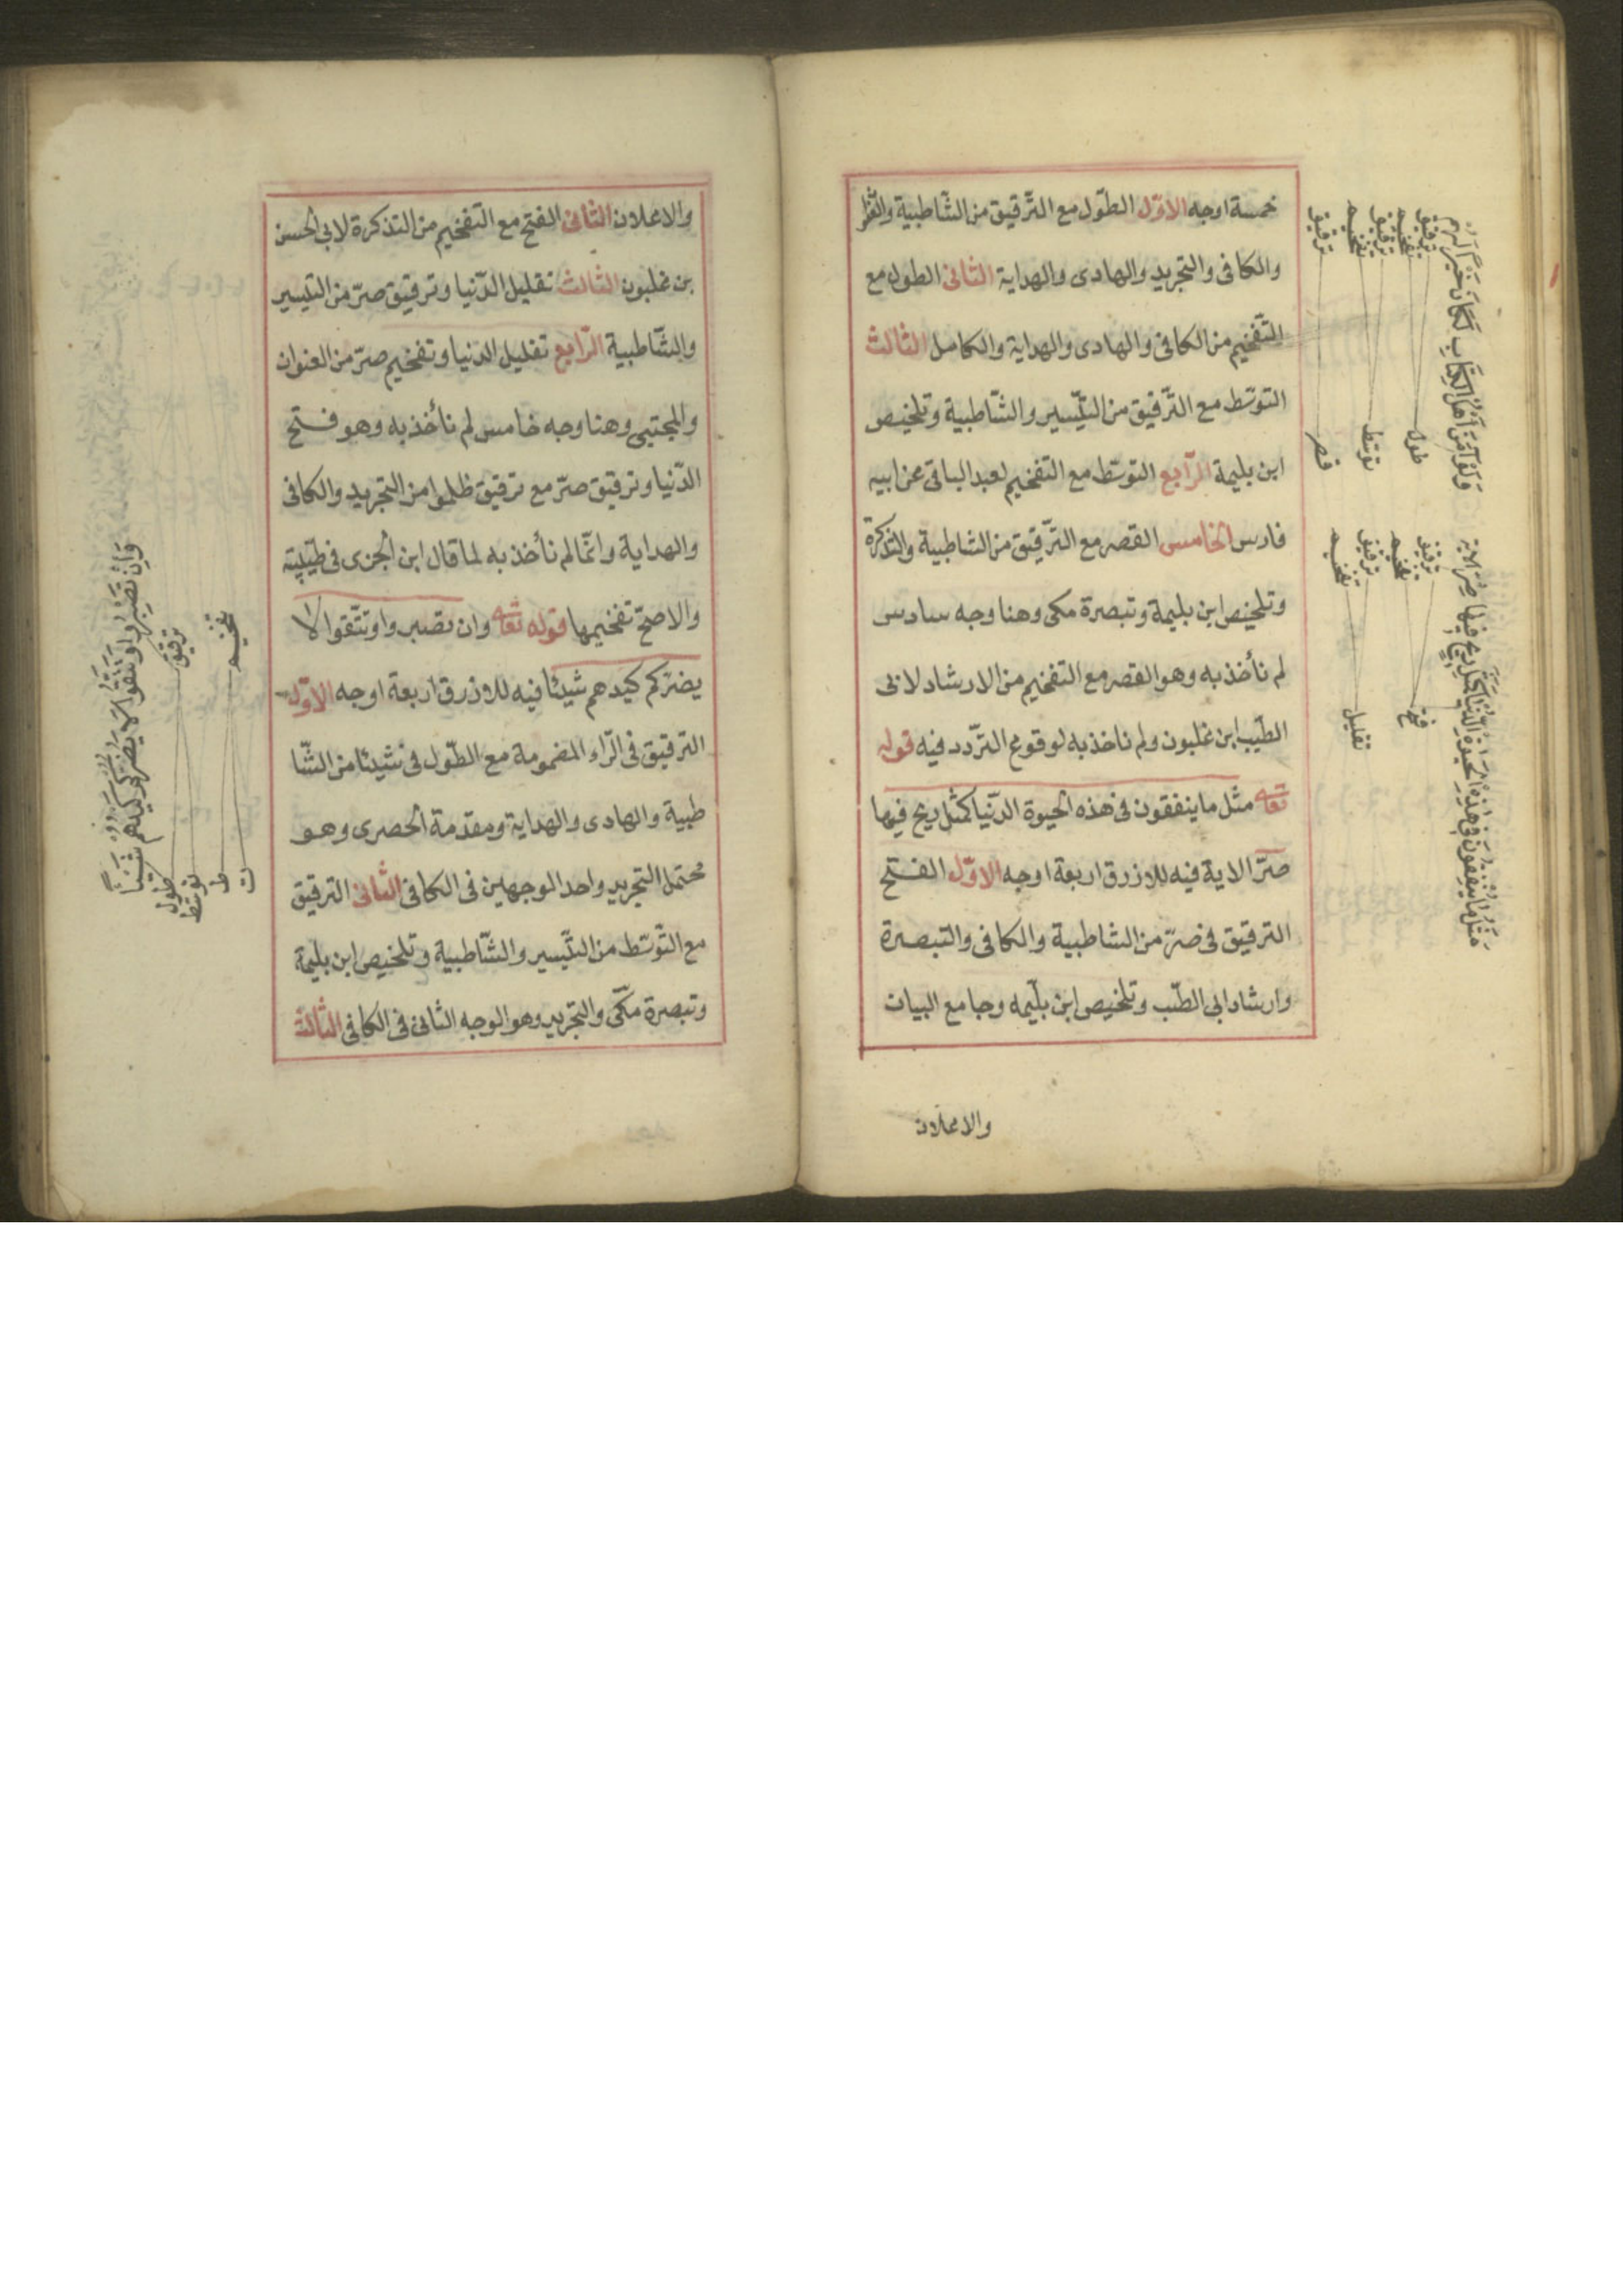 خمسة اوجه الاوّل الطّول مع التّرقيق من الشّاطبية
والكافى والتجريد والهادى والهداية الثانى الطول مع
التّفخيم من الكافى والهادى والهداية والكامل الثالث
التوسّط مع التّرقيق من التّيسير والشّاطبية وتلخيص
ابن بليمة الرّابع التوسّط مع التفخيم لعبد الباقى عن ابيه
فارس الخامس القصر مع التّرقيق من الشاطبية والتذكرة
وتلخيص ابن بليمة وتبصرة مكى وهنا وجه سادس
لم نأخذ به وهو القصر مع التفخيم من الارشاد لابى
الطّيب ابن غلبون ولم ناخذ به لوقوع التّردد فيه قوله
تعالى مثل ما ينفقون فى هذه الحيوة الدّنيا كمثل ريح فيها
صرّ الاية فيه للازرق اربعة اوجه الاوّل الفتح
الترقيق فى صرّ من الشاطبية والكافى والتبصرة
وارشاد ابى الطّيب وتلخيص ابن بلّيمه وجامع البيان
والاعلان
وَلَوْ آمَنَ اَهْلُ الْكِتَابِ لَكَانَ خَيْرًا لَهُمْ
ترقيق تفخيم ترقيق تفخيم ترقيق
طول توسط قصر
مَثَلُ مَا يُنْفِقُونَ فِى هٰذِهِ الْحَيٰوةِ الدُّنْيَا كَمَثَلِ رِيحٍ فِيهَا صِرٌّ الاية
ترقيق تفخيم ترقيق تفخيم
فتح تقليل
والاعلان الثانى الفتح مع التفخيم من التذكرة لابى الحسن
بن غلبون الثالث تقليل الدّنيا وترقيق صرّ من التيسير
والشّاطبية الرّابع تقليل الدنيا وتفخيم صرّ من العنوان
والمجتبى وهنا وجه خامس لم نأخذ به وهو فتح
الدّنيا وترقيق صرّ مع ترقيق ظلموا من التجريد والكافى
والهداية وانّما لم نأخذ به لما قال ابن الجزى فى طيّبته
والاصحّ تفخيمها قوله تعالى وان تصبروا وتتّقوا لا
يضرّكم كيدهم شيئا فيه للازرق اربعة اوجه الاوّل
الترقيق فى الرّاء المضمومة مع الطّول فى شيئا من الشّا
طبية والهادى والهداية ومقدّمة الحصرى وهو
محتمل التجريد واحد الوجهين فى الكافى الثانى الترقيق
مع التّوسّط من التّيسير والشّاطبية وتلخيص ابن بليمة
وتبصرة مكّى والتجريد وهو الوجه الثانى فى الكافى الثالث
وَاِنْ تَصْبِرُوا وَتَتَّقُوا لَا يَضُرُّكُمْ كَيْدُهُمْ شَيْئًا
ترقيق تفخيم
طول توسّط ط ت